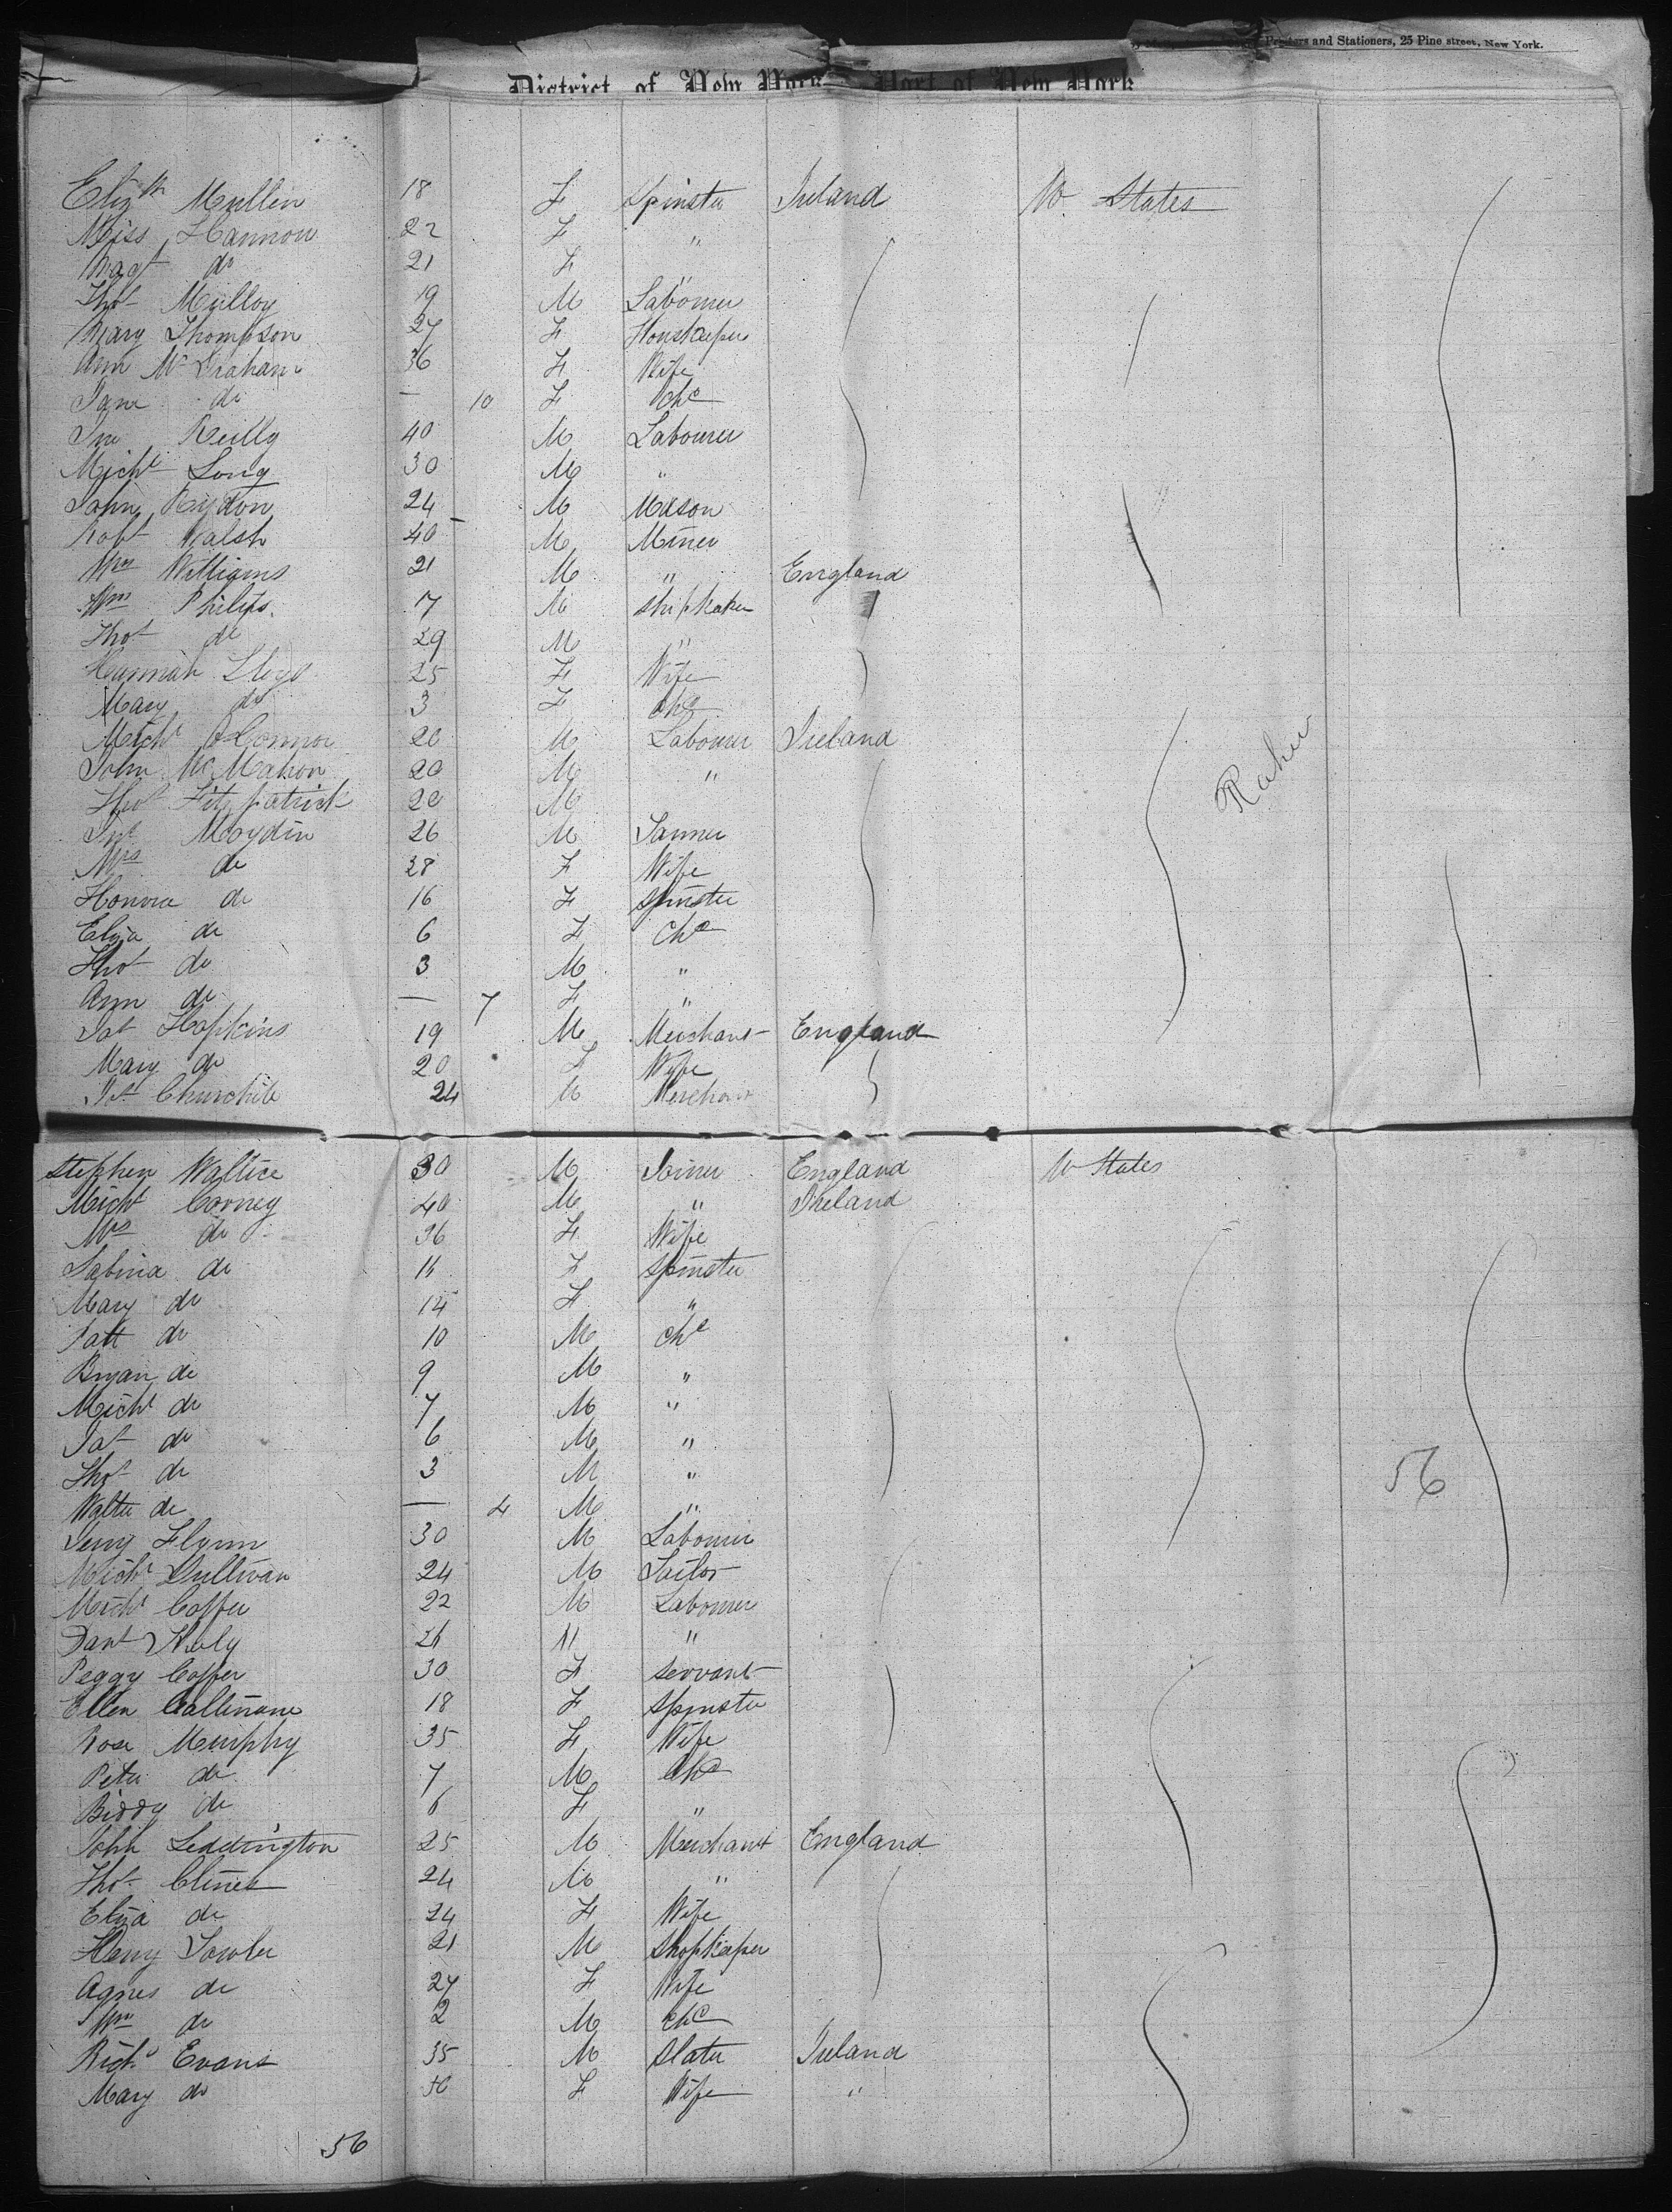 Printers and Stationers, 25 Pine street, New York.
District of New York Port of New York
Elizth Mullin 18 F Spinster Ireland U. States
Miss Hannon 22 F "
Magt do 21 F "
Thos Mulloy 19 M Labourer
Mary Thompson 27 F Houskeeper
Ann Mc Graham 36 F Wife
Jane do — 10 F Chd
Jno Reilly 40 M Labourer
Michl Long 30 M "
John Rydon 24 M Mason
Robt Walsh 40 M Miner
Wm Williams 21 M " England
Wm Philips 17 M
Thos do 29 M "
Hannah Lloyd 25 F Wife
Mary do 3 F Chd
Michl O'Connor 20 M Labourer Ireland
John Mc Mahon 20 M "
Fitzpatrick 20 M
Raher
Moydin 26 M Tanner
Mrs do 28 F Wife
Honora do 16 F Spinster
Eliza do 6 F Chd
Thos do 3 M "
Ann do — 7 F "
Hopkins 19 M Merchant England
Mary do 20 F Wife
Churchill 24 M Merchant
Stephen 30 M Joiner England U States
Michl Corney 40 M " Ireland
Mrs do 36 F Wife
Sabina do F Spinster
Mary do 14 F "
Patt do 10 M Chd
Bryan do 9 M "
Michl do 7 M "
do 6 M "
Thos do 3 M "
56
Walter do — 4 M "
Flynn 30 M Labourer
Michl Sullivan 24 M Tailor
Michl Coffee 22 M Labourer
Danl M "
Peggy Coffee 30 F Servant
Ellen Callinane 18 F Spinster
Rose Murphy 35 F Wife
Peter do 7 M Chd
Biddy do 6 F "
John Leddington 25 M Merchant England
Thos Clines 24 M "
Eliza do 24 F Wife
Henry Fowler 21 M Shopkeeper
Agnes do 27 F Wife
Wm do 2 M Chd
Richd Evans 35 M Slater Ireland
Mary do F Wife "
56